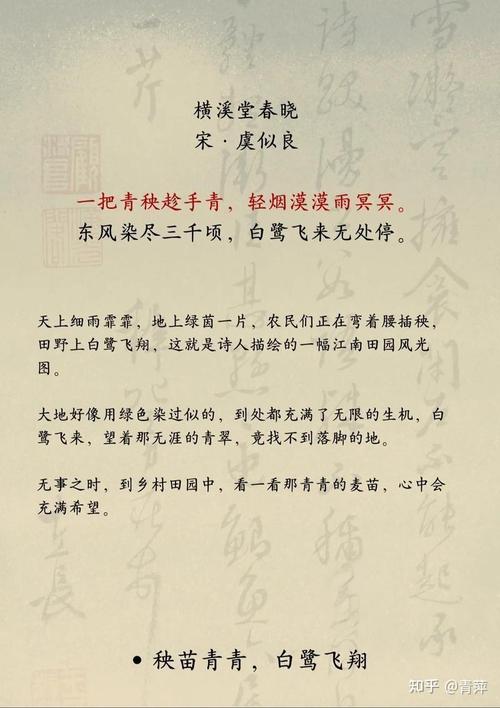 横溪堂春晓
宋·虞似良
一把青秧趁手青，轻烟漠漠雨冥冥。
东风染尽三千顷，白鹭飞来无处停。
天上细雨霏霏，地上绿茵一片，农民们正在弯着腰插秧，
田野上白鹭飞翔，这就是诗人描绘的一幅江南田园风光
图。
大地好像用绿色染过似的，到处都充满了无限的生机，白
鹭飞来，望着那无涯的青翠，竟找不到落脚的地。
无事之时，到乡村田园中，看一看那青青的麦苗，心中会
充满希望。
• 秧苗青青，白鹭飞翔
知乎 @青萍